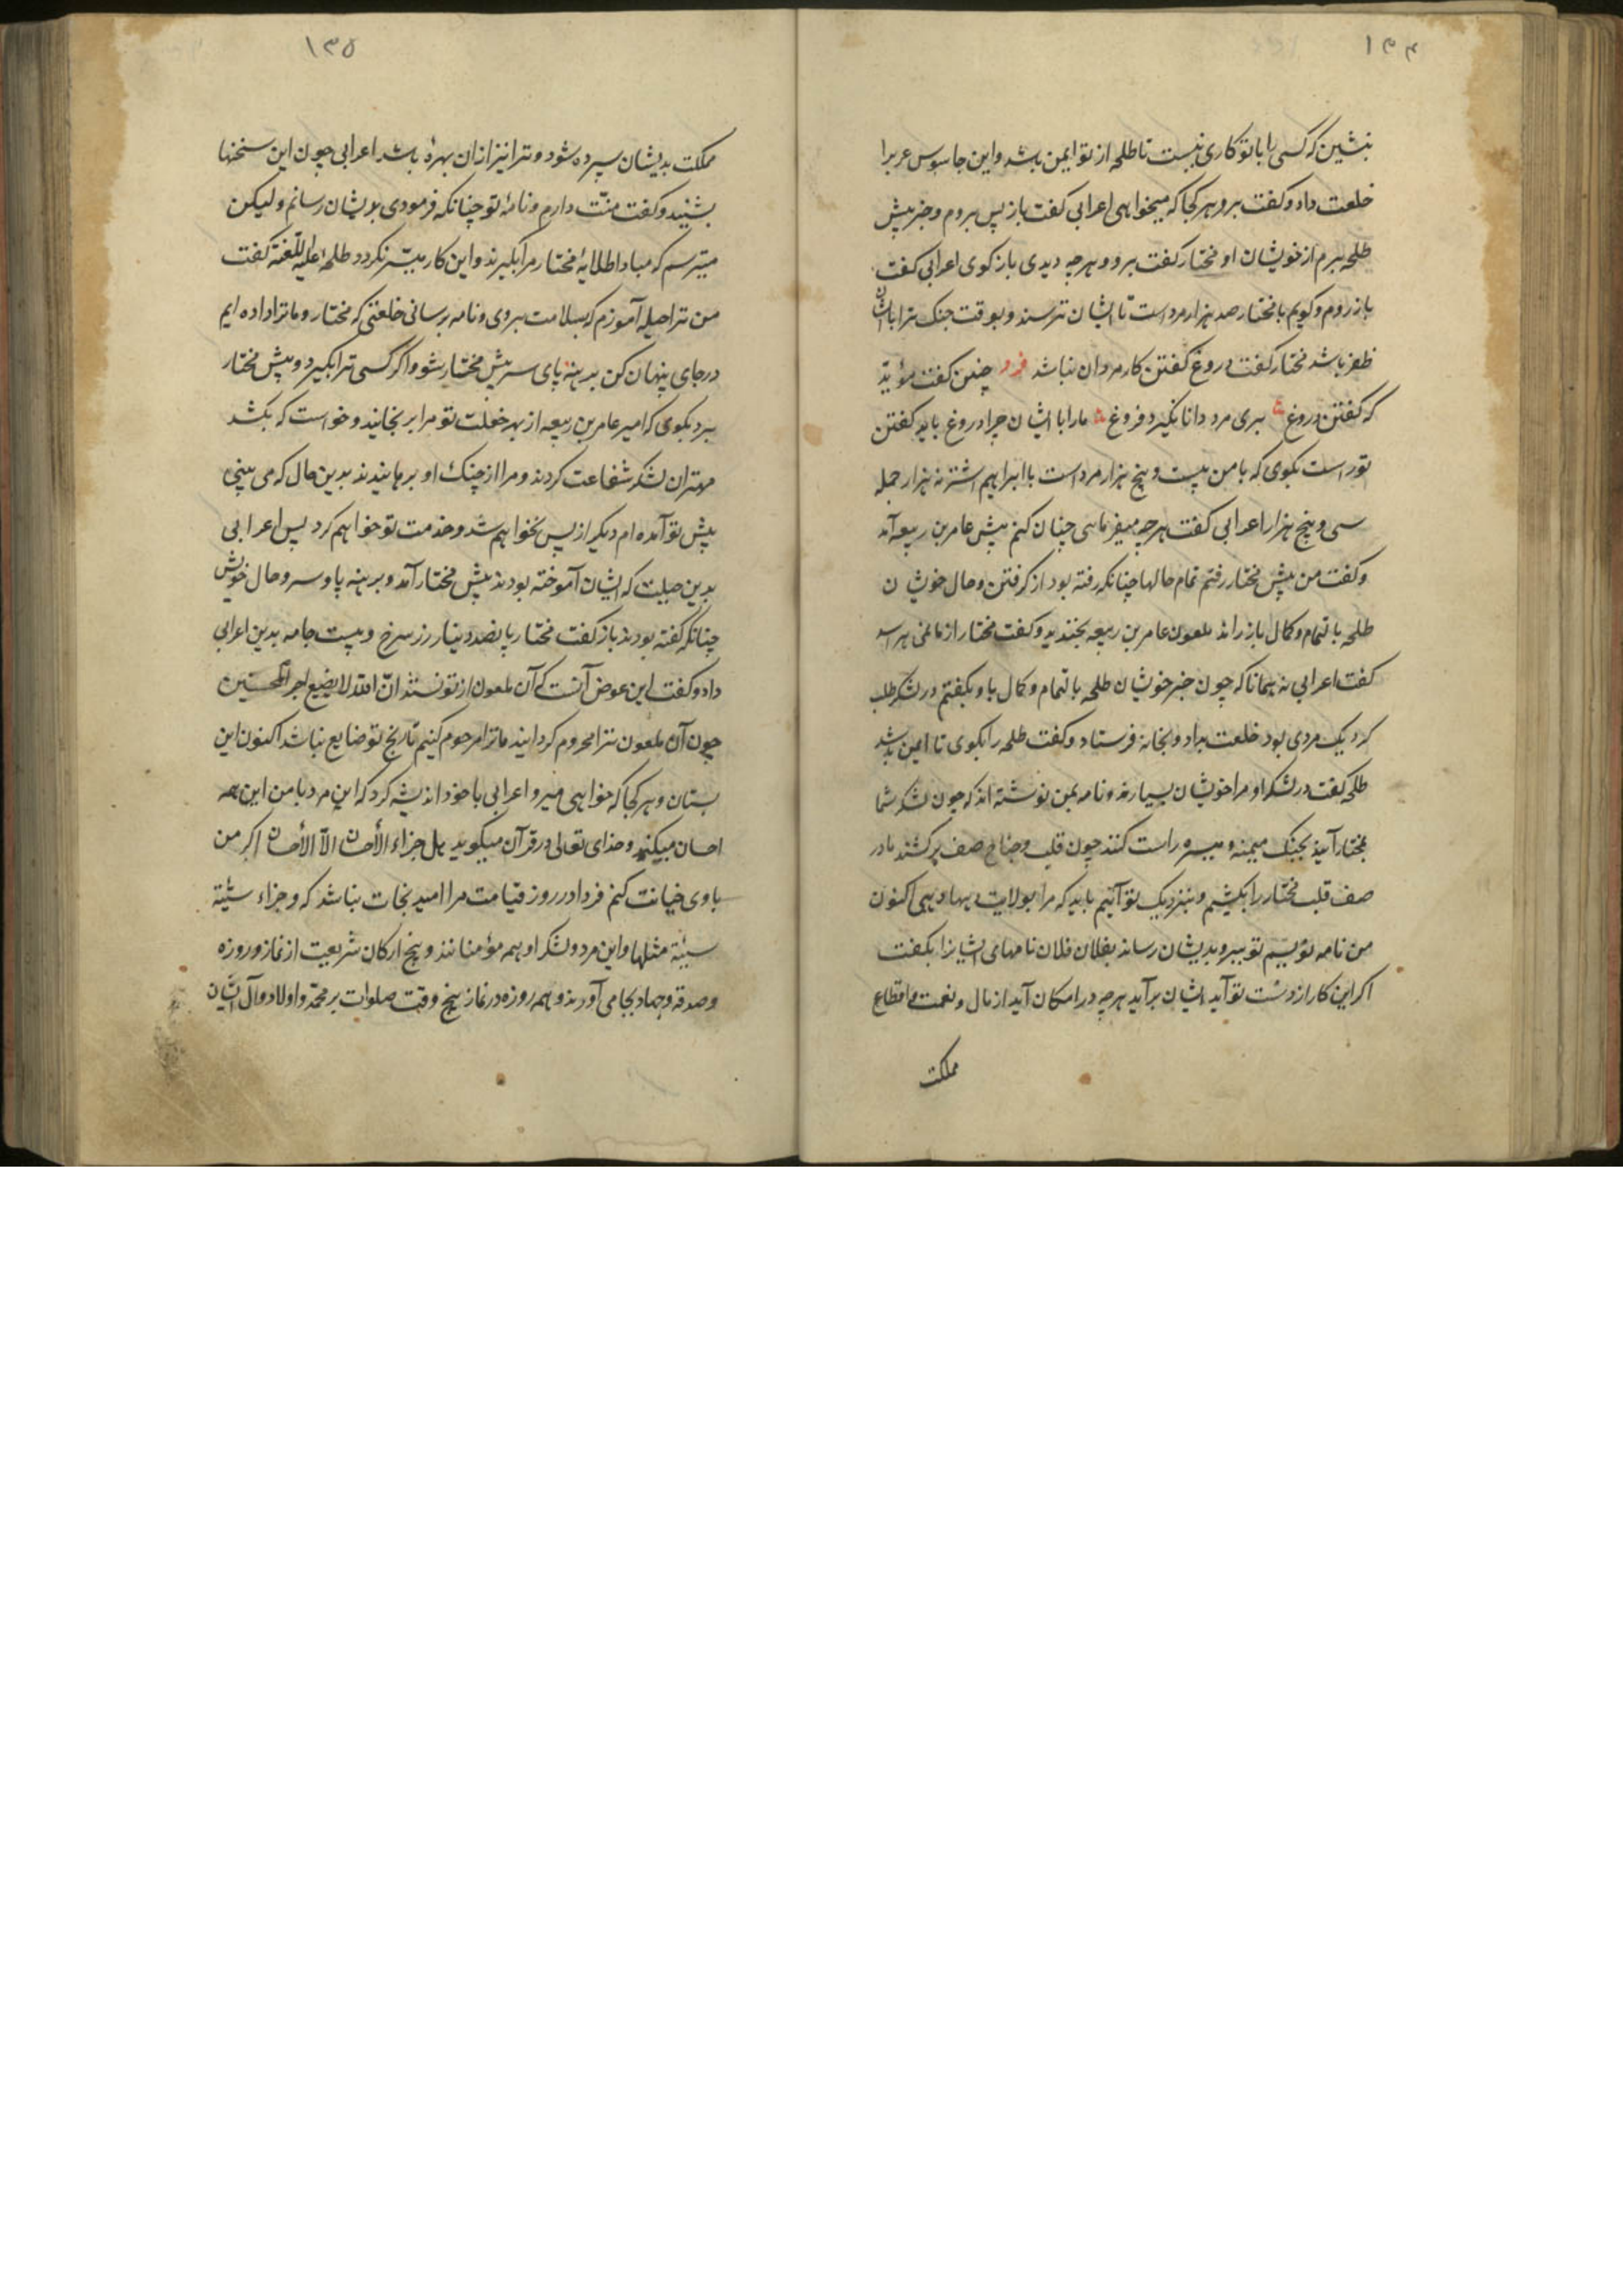 ۱۳۴
بنشین که کسی را با تو کاری نیست تا طلحه از تو ایمن باشد و این جاسوس عرب را
خلعت داد و کفت برو هر کجا که میخواهی اعرابی کفت باز پس بروم و خبر پیش
طلحه برم از خویشان او مختار کفت برو و هر چه دیدی باز کوی اعرابی کفت
باز روم و کویم با مختار صد هزار مرد است تا ایشان ترسند و بوقت جنک ترا با ایشان
ظفر باشد مختار کفت دروغ کفتن کار مردان نباشد فرد چنین کفت مؤبد
که کفتن دروغ بری مرد دانا نکیرد فروغ مارا با ایشان چرا دروغ باید کفتن
تو راست بکوی که با من بیست و پنج هزار مرد است با ابراهیم اشتر نه هزار جمله
سی و پنج هزار اعرابی کفت هر چه میفرمایی چنان کنم پیش عامر بن ربیعه آمد
و کفت من پیش مختار رفتم تمام حالها چنانکه رفته بود از کرفتن و حال خویشان
طلحه باتمام و کمال باز راند ملعون عامر بن ربیعه بخندید و کفت مختار از ما نمی هراسد
کفت اعرابی نه همانا که چون خبر خویشان طلحه باتمام و کمال باو بکفتم در لشکر طلب
کرد یک مردی بود خلعت بداد و بخانه فرستاد و کفت طلحه را بکوی تا ایمن باشد
طلحه کفت در لشکر او مرا خویشان بسیارند و نامه بمن نوشته اند که چون لشکر شما
بمختار آیند بجنک میمنه و میسره راست کنند چون قلب و جناح صف برکشند ما در
صف قلب مختار را بکشیم و بنزدیک تو آئیم باید که مرا بولایت دیها دهی اکنون
من نامه نویسم تو ببر و بدیشان رسان بفلان فلان نامهای ایشانرا بکفت
اکر این کار از دست تو آید ایشان برآید هر چه در امکان آید از مال و نعمت و اقطاع
مملکت
۱۳۵
مملکت بدیشان سپرده شود و ترا نیز ازان بهرهٔ باشد اعرابی چون این سخنها
بشنید و کفت منّت دارم و نامهٔ تو چنانکه فرمودی بدیشان رسانم ولیکن
میترسم که مبادا طلایهٔ مختار مرا بکیرند و این کار میسّر نکردد طلحهٔ علیه اللّعنة کفت
من ترا حیله آموزم که بسلامت بروی و نامه برسانی خلعتی که مختار و ما ترا داده ایم
در جای پنهان کن برهنه پای سر پیش مختار شو و اکر کسی ترا بکیرد و پیش مختار
برد بکوی که امیر عامر بن ربیعه از بهر خلعت تو مرا برنجانید و خواست که بکشد
مهتران لشکر شفاعت کردند و مرا از چنک او برهانیدند بدین حال که می بینی
پیش تو آمده ام دیکر از پس نخواهم شد و خدمت تو خواهم کرد پس اعرابی
بدین حیلت که ایشان آموخته بودند پیش مختار آمد و برهنه پا و سر و حال خویش
چنانکه کفته بودند باز کفت مختار پانصد دینار زر سرخ و بیست جامه بدین اعرابی
داد و کفت این عوض آنست که آن ملعون از تو نستد انّ اللّه لا یضیع اجر المحسنین
چون آن ملعون ترا محروم کردانید ما ترا مرحوم کنیم تا رنج تو ضایع نباشد اکنون این
بستان و هر کجا که خواهی میرو اعرابی با خود اندیشه کرد که این مرد با من این همه
احسان میکند و خدای تعالی در قرآن میکوید هل جزاء الأحسان الاّ الأحسان اکر من
با وی خیانت کنم فردا در روز قیامت مرا امید نجات نباشد که و جزاء سیّئة
سیئة مثلها و این مرد و لشکر او همه مؤمنانند و پنج ارکان شریعت از نماز و روزه
و صدقه و جهاد بجا می آورند و همه روزه در نماز پنج وقت صلوات بر محمّد و اولاد و آل ایشان